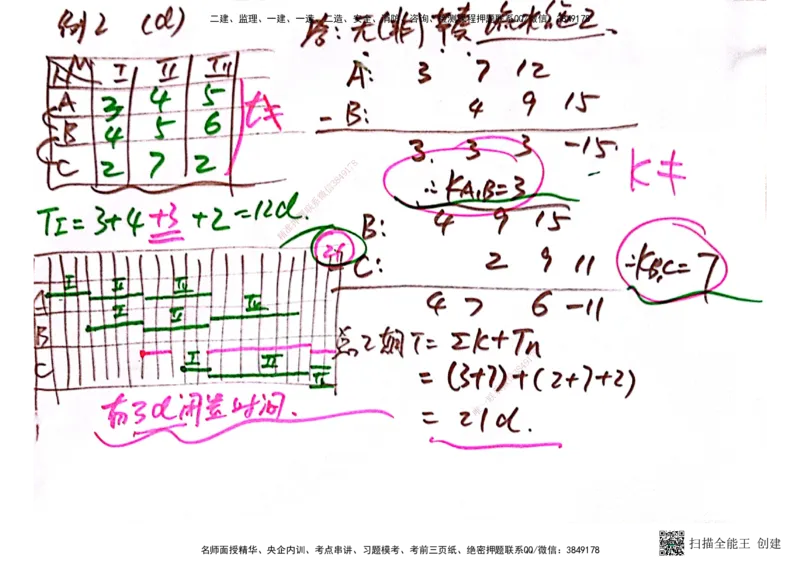 二建、监理、一建、一造、二造、安全、消防、咨询、检测工程押题联系QQ/微信：3849178
例2 (d)
答：无(非)节奏流水施工.
I II III
A 3 4 5
B 4 5 6
C 2 7 2
t≠
A: 3 7 12
- B: 4 9 15
3. 3 3 -15
∴ KA,B=3
K≠
TI=3+4+3+2=12d.
B: 4 9 15
- C: 2 9 11
∴KB,C=7
4 7 6 -11
A I II III
B I II III
C I II III
有3d闲置时间.
总工期T=ΣK+Tn
=(3+7)+(2+7+2)
=21d.
扫描全能王 创建
名师面授精华、央企内训、考点串讲、习题模考、考前三页纸、绝密押题联系QQ/微信：3849178